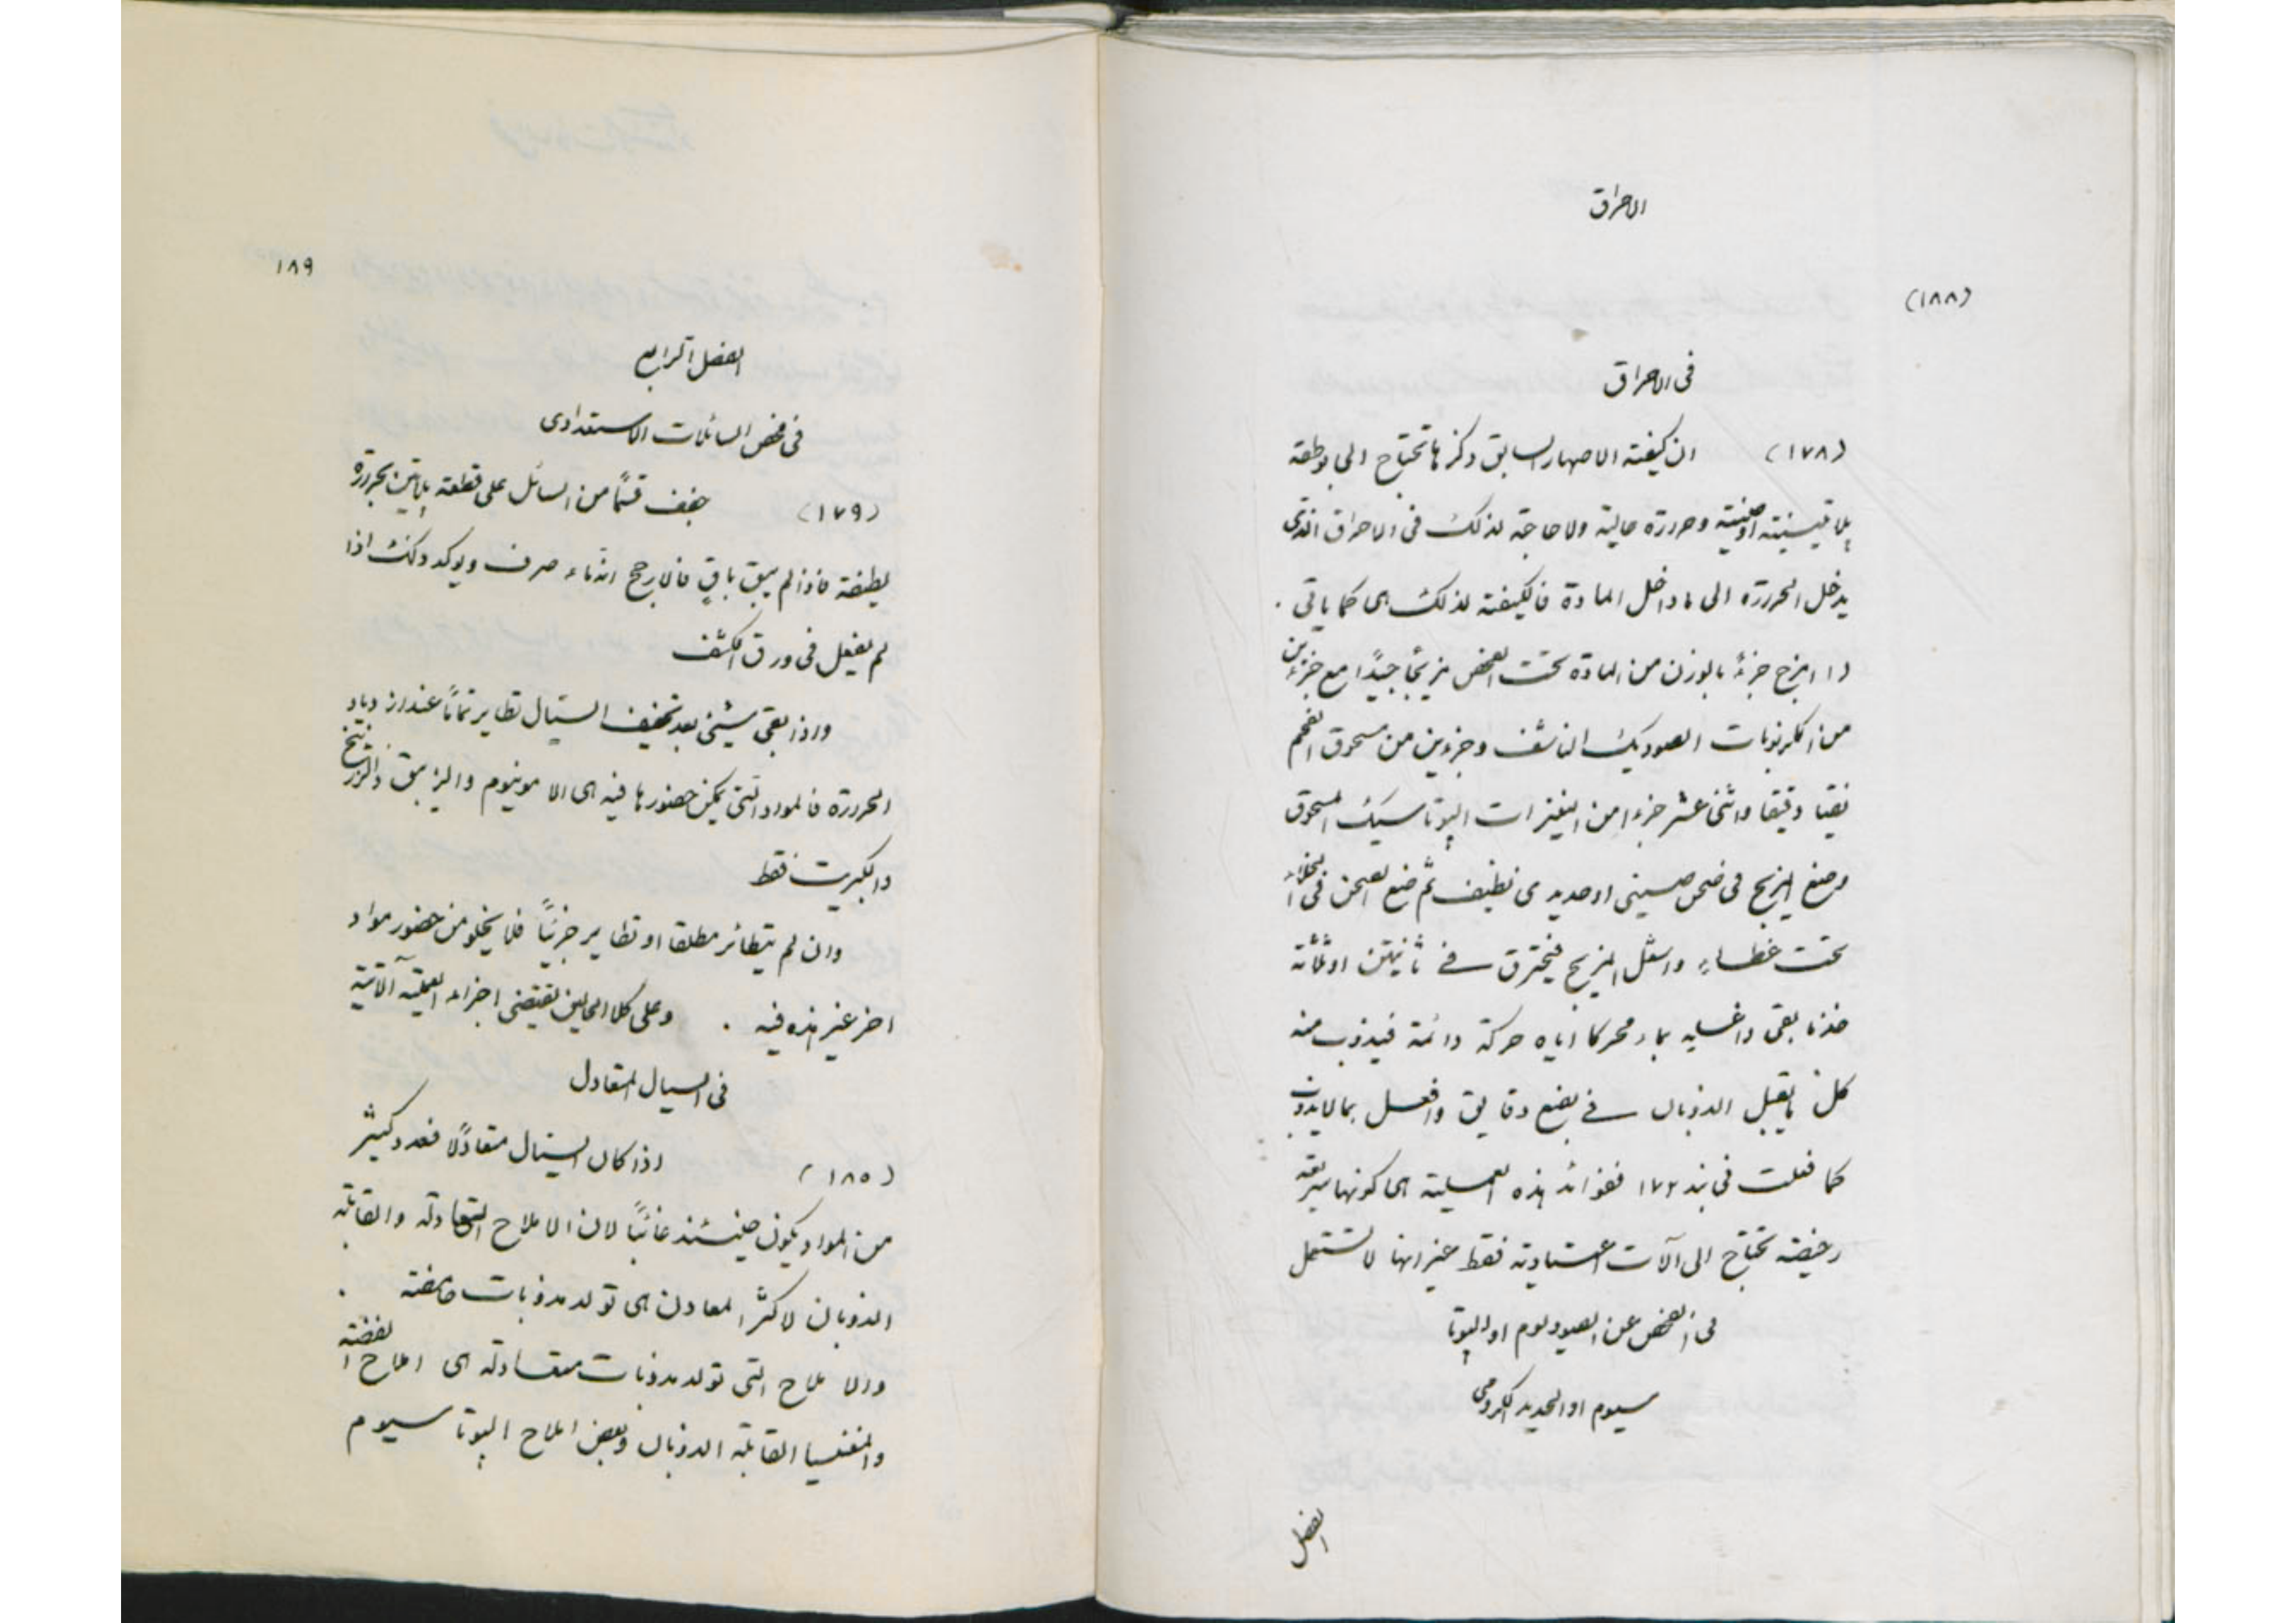 الاحراق
(١٨٨)
فی الاحراق
(١٧٨) ان کیفیته الاصهار السابق ذکرها تحتاج الی بوطقة
پلاتینیته اوصینیة وحررة عالیة ولا حاجة لذلک فی الاحراق الذی
یدخل الحررة الی ماداخل المادة فالکیفیته لذلک هی کما یاتی .
(١) امزج جزءً بالوزن من المادة تحت الفحص مزیجًا جیدًا مع جزءین
من الکربونات الصودیک الناشف وجزءین من مسحوق الفحم
نقیا دقیقا واثنی عشر جزءا من النیترات الپوتاسیک المسحوق
وضع المزیج فی صحن صینی اوحدیدی نظیف ثم ضع الصحن فی الخلاء
تحت غطاء واشعل المزیج فیحترق فی ثانیتین اوثلاثة
خذما بقی واغسله بماء محرکا ایاه حرکة دائمة فیذوب منه
کلما یقبل الذوبان فی بضع دقایق وافعل بما لایذوب
کما فعلت فی بند ١٧٢ ففوائد هذه العملیة هی کونها سریعة
رخیصة تحتاج الی آلات اعتیادیة فقط غیر انها لا تستعمل
فی الفحص عن الصودیوم او الپوتا
سیوم او الحدید الکرومی
الفصل
١٨٩
الفصل الرابع
فی فحص السائلات الاستعدادی
(١٧٩) جفف قسمًا من السائل علی قطعة پلاتین بحررة
لطیفة فاذا لم یبق باقٍ فالارجح انه ماء صرف ویوکد ذلک اذا
لم یفعل فی ورق الکشف
واذا بقی شیئی بعد تجفیف السیّال تطایر تمامًا عند ازدیاد
الحررة فالمواد التی یمکن حضورها فیه هی الامونیوم والزیبق والزرنیخ
والکبریت فقط
وان لم یتطائر مطلقا او تطایر جزئیًا فلا یخلو من حضور مواد
اخر غیر هذه فیه . وعلی کلا الحالین یقتضی اجراء العملیة الآتیة
فی السیال المتعادل
(١٨٥) اذا کان السیّال متعادلًا فعدد کثیر
من المواد یکون حینئذ غائبًا لان الاملاح المتعادلة والقابلة
الذوبان لاکثر المعادن هی تولد مذوبات حامضة .
والاملاح التی تولد مذوبات متعادلة هی املاح الفضة
والمغنسیا القابلة الذوبان وبعض املاح الپوتاسیوم